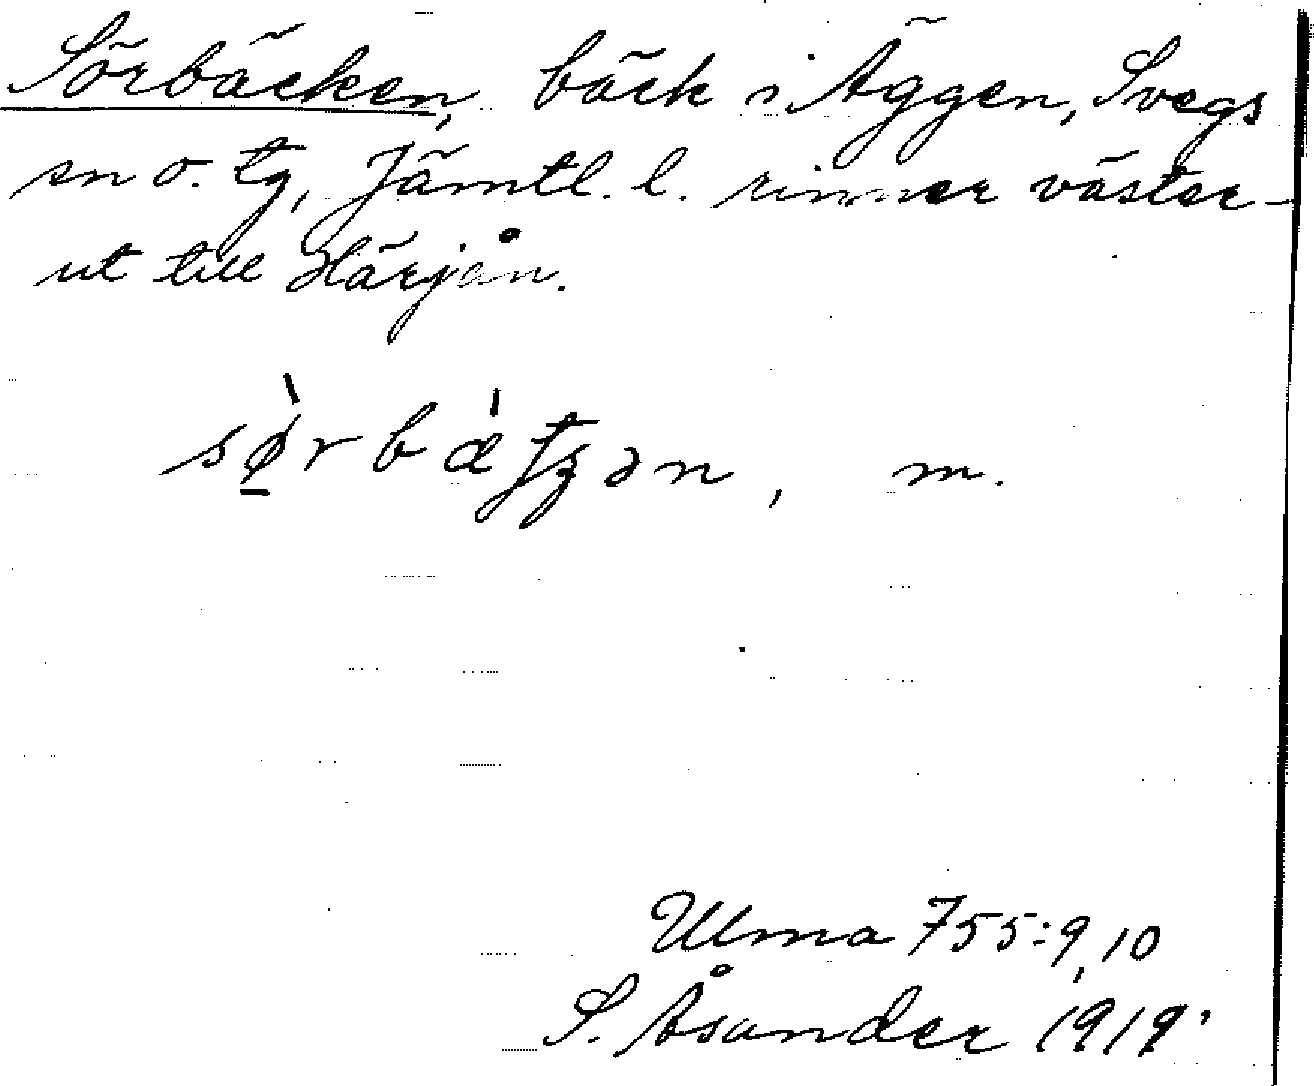 Sörbäcken, bäck i Äggen, Svegs
sn o. tg, Jämtl. l. rinner väster-
ut till Härjån.
sø̀rbætʒən, m.
Ulma 755:9,10
S. Åsander 1919.